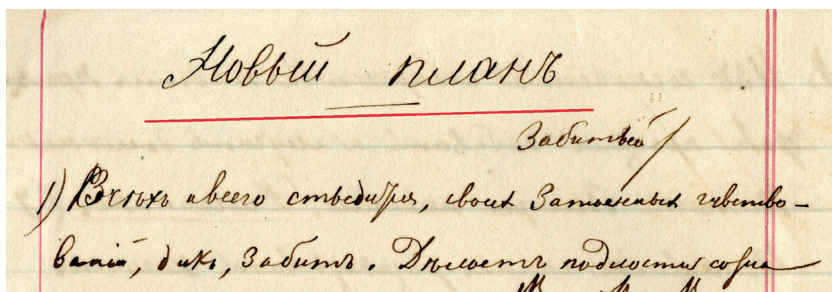 Новый планъ
Забитый
1) Всѣхъ и всего стыдится, своих затаенных чувство-
ваний, дикъ, забитъ. Дѣлаетъ подлости созна